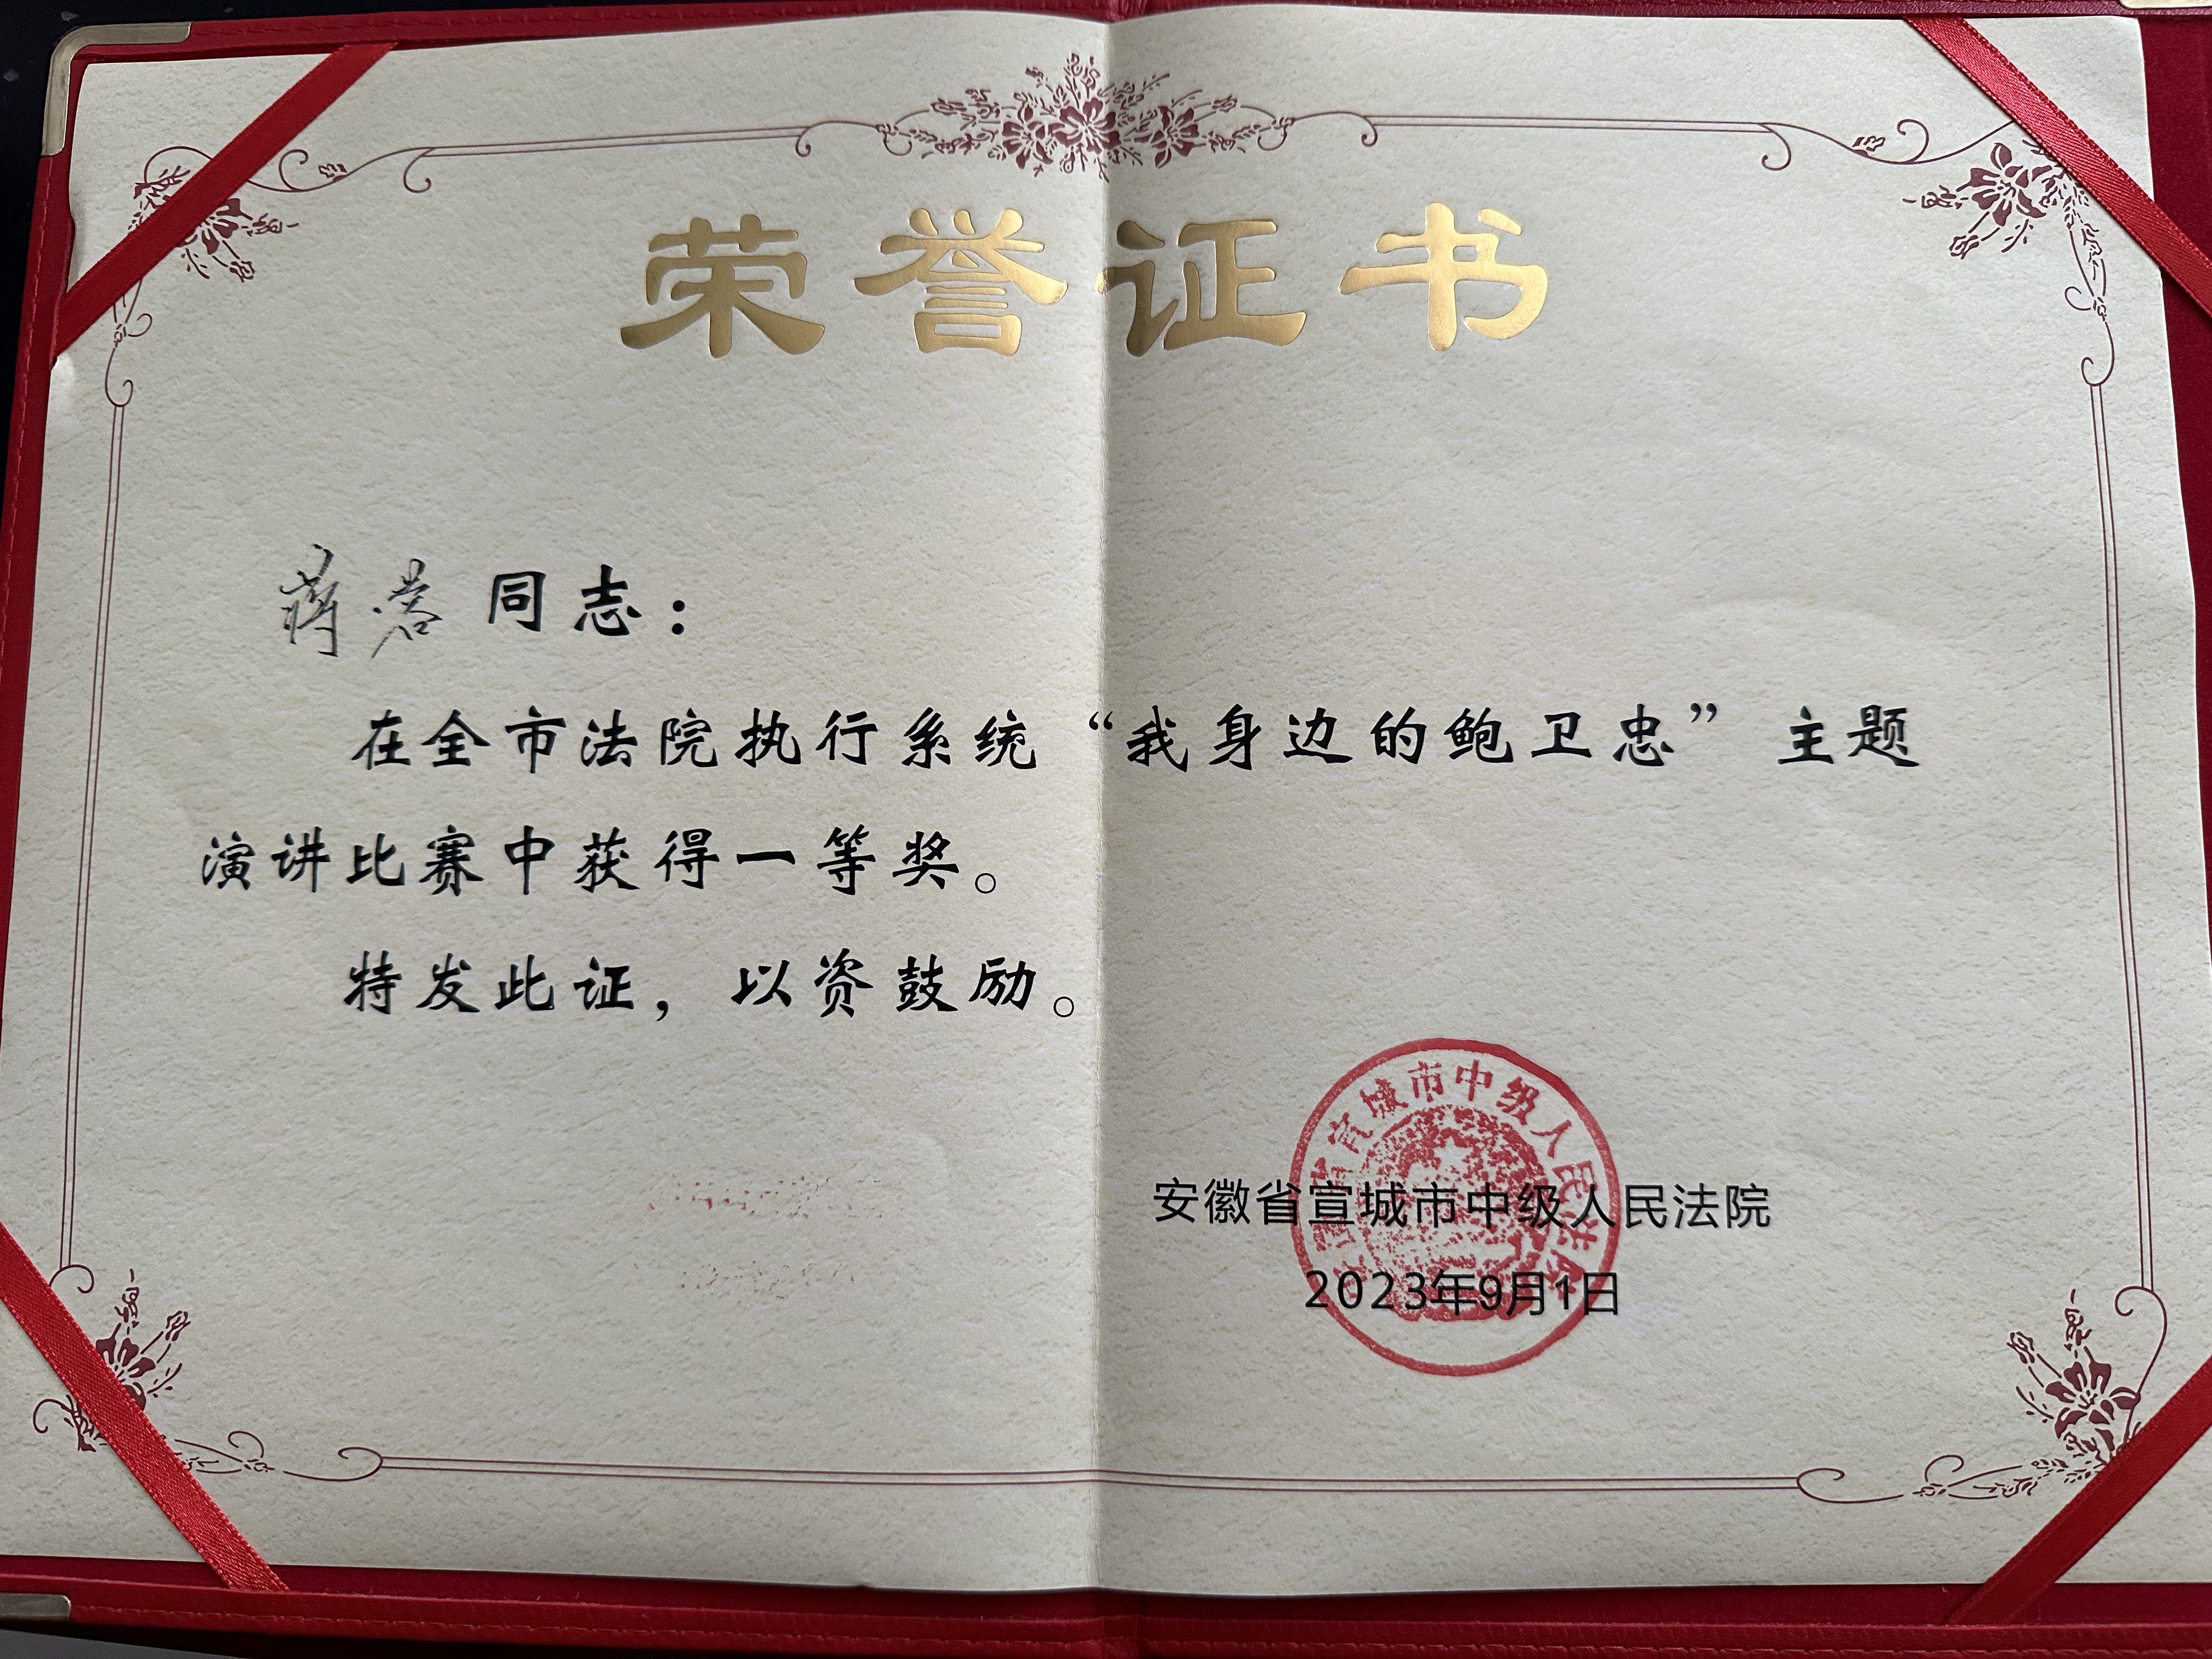 荣誉证书
蒋蓉同志：
在全市法院执行系统“我身边的鲍卫忠”主题
演讲比赛中获得一等奖。
特发此证，以资鼓励。
宣城市中级人民法院
安徽省宣城市中级人民法院
2023年9月1日